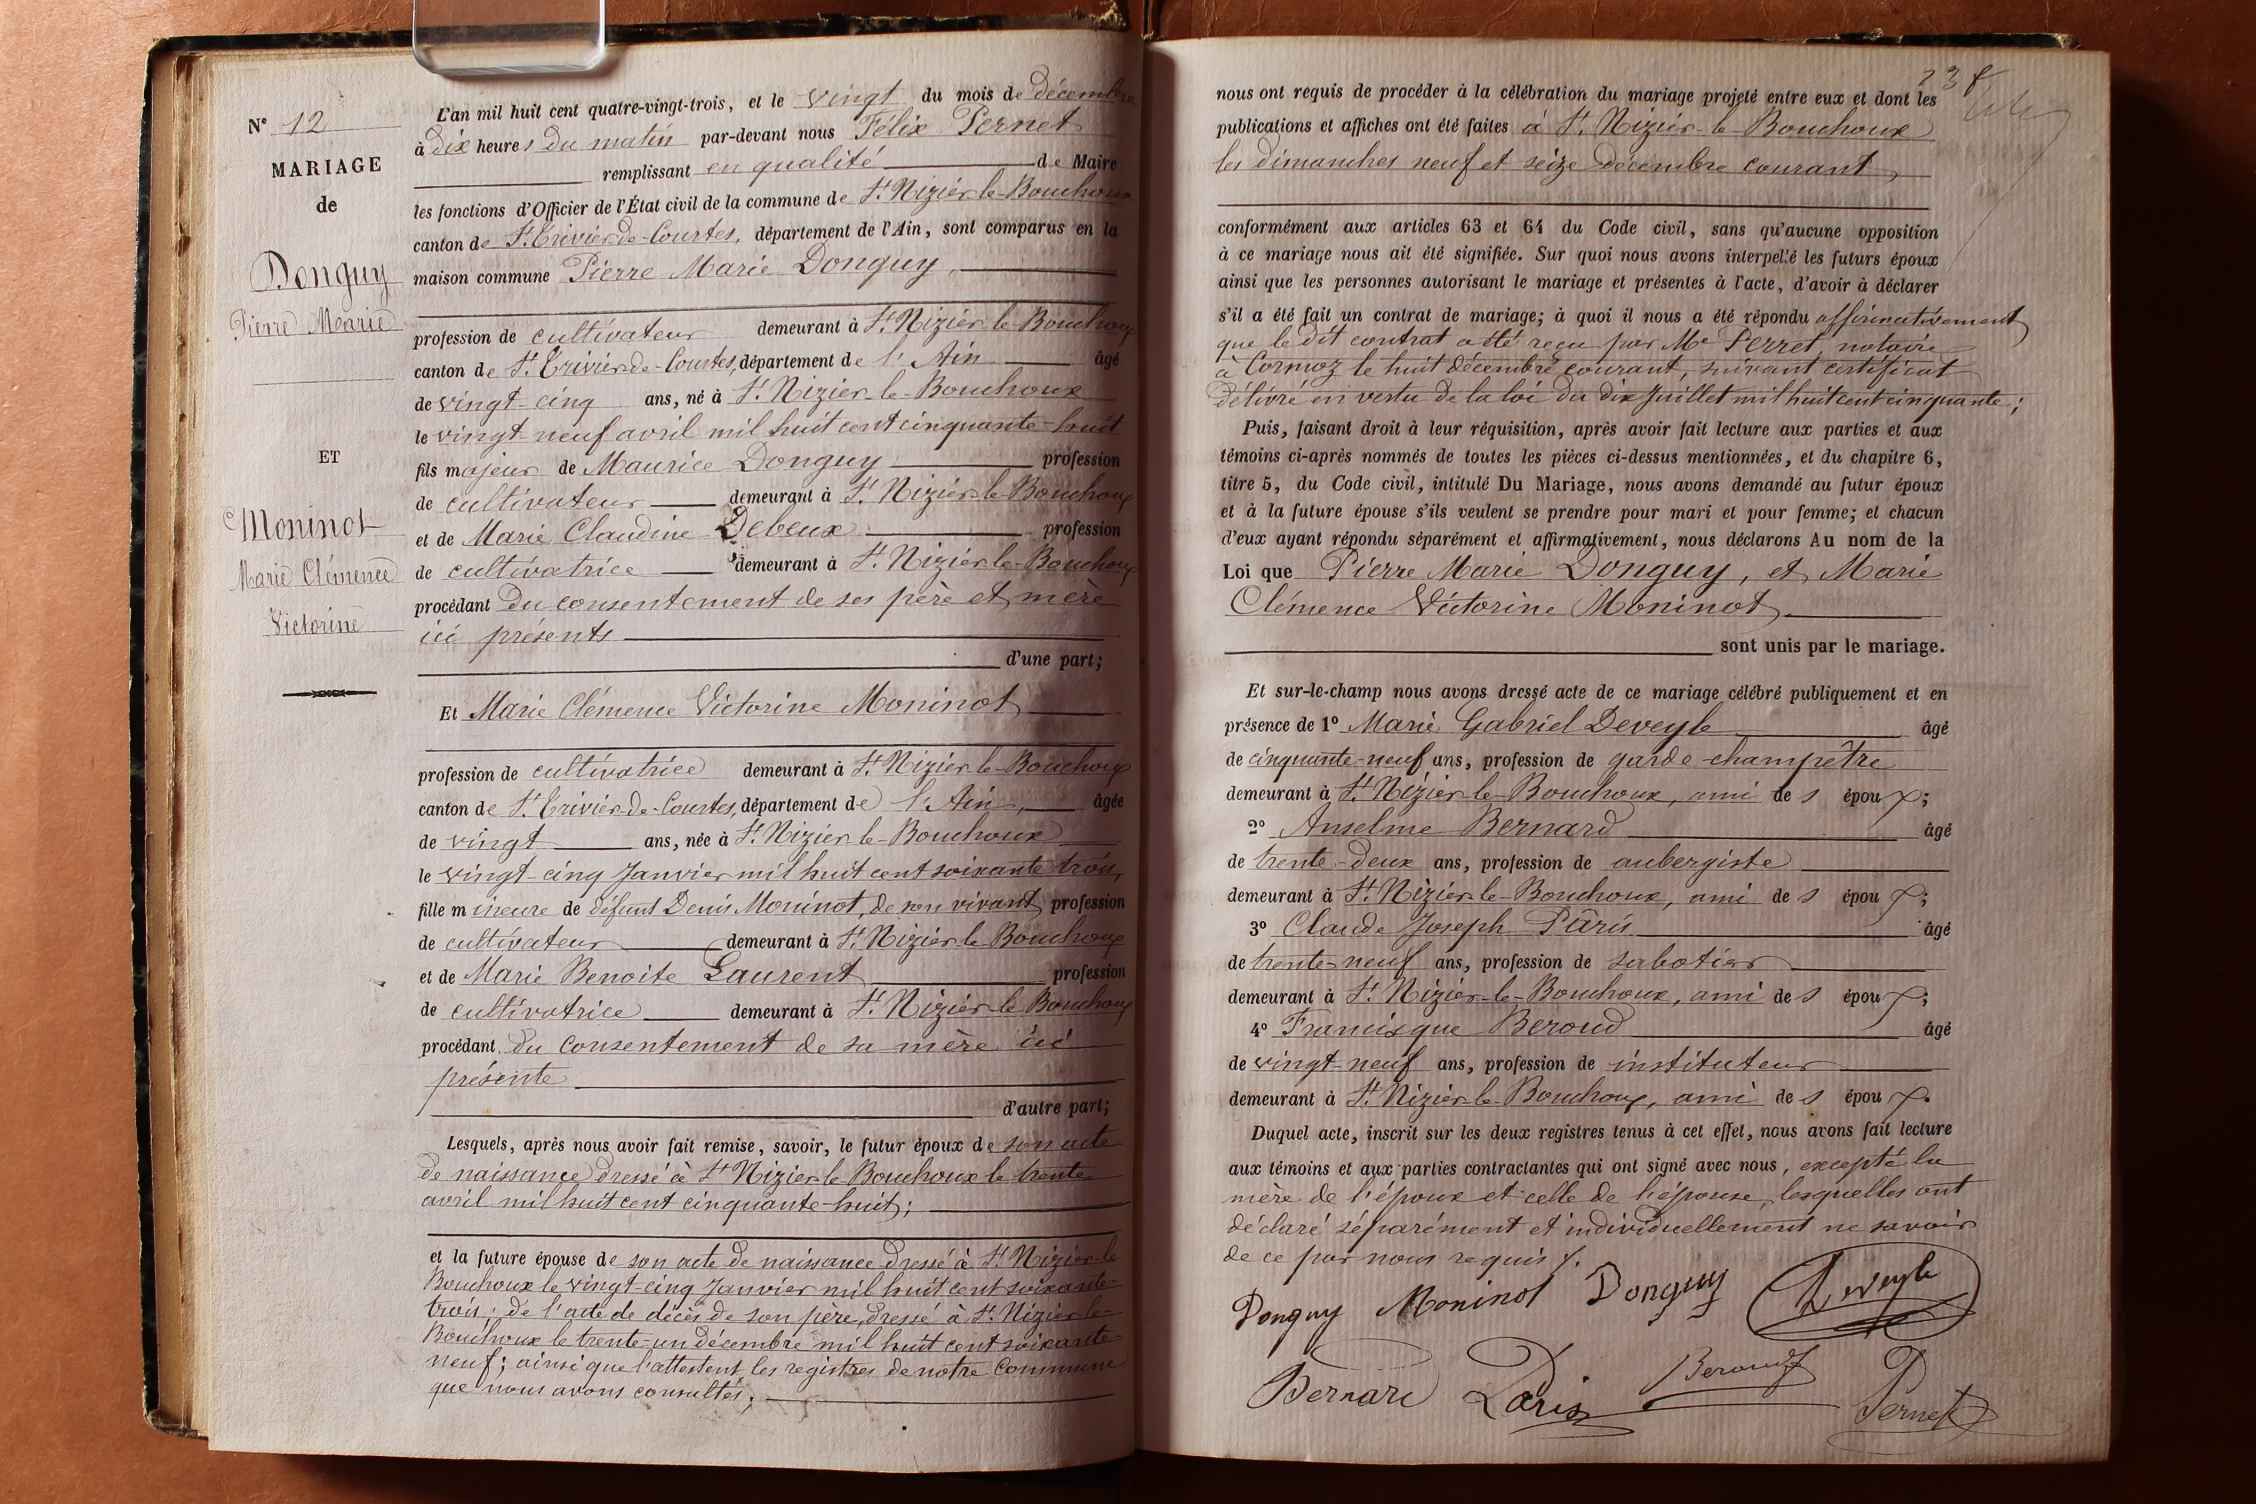 N° 12
MARIAGE
de
Donguy
Pierre Marie
ET
Moninot
Marie Clémence
Victorine
L'an mil huit cent quatre-vingt-trois, et le vingt du mois de décembre
à dix heures du matin par-devant nous Félix Pernet
remplissant en qualité de Maire
les fonctions d'Officier de l'État civil de la commune de St Nizier-le-Bouchoux
canton de St Trivier-de-Courtes, département de l'Ain, sont comparus en la
maison commune Pierre Marie Donguy,
profession de cultivateur demeurant à St Nizier-le-Bouchoux
canton de St Trivier-de-Courtes, département de l'Ain âgé
de vingt-cinq ans, né à St Nizier-le-Bouchoux
le vingt-neuf avril mil huit cent cinquante-huit
fils majeur de Maurice Donguy profession
de cultivateur demeurant à St Nizier-le-Bouchoux
et de Marie Claudine Debeux profession
de cultivatrice demeurant à St Nizier-le-Bouchoux
procédant du consentement de ses père et mère
ici présents
d'une part;
Et Marie Clémence Victorine Moninot
profession de cultivatrice demeurant à St Nizier-le-Bouchoux
canton de St Trivier-de-Courtes, département de l'Ain, âgée
de vingt ans, née à St Nizier-le-Bouchoux
le vingt-cinq Janvier mil huit cent soixante trois,
fille mineure de défunt Denis Moninot, de son vivant profession
de cultivateur demeurant à St Nizier-le-Bouchoux
et de Marie Benoite Laurent profession
de cultivatrice demeurant à St Nizier-le-Bouchoux
procédant du consentement de sa mère ici
présente
d'autre part;
Lesquels, après nous avoir fait remise, savoir, le futur époux de son acte
de naissance dressé à St Nizier-le-Bouchoux le trente
avril mil huit cent cinquante-huit;
et la future épouse de son acte de naissance dressé à St Nizier-le
Bouchoux le vingt-cinq Janvier mil huit cent soixante-
trois; de l'acte de décès de son père, dressé à St Nizier-le-
Bouchoux le trente-un décembre mil huit cent soixante-
neuf; ainsi que l'attestent les registres de notre Commune
que nous avons consultés;
23
nous ont requis de procéder à la célébration du mariage projeté entre eux et dont les
publications et affiches ont été faites à St Nizier-le-Bouchoux
les dimanches neuf et seize décembre courant,
conformément aux articles 63 et 64 du Code civil, sans qu'aucune opposition
à ce mariage nous ait été signifiée. Sur quoi nous avons interpellé les futurs époux
ainsi que les personnes autorisant le mariage et présentes à l'acte, d'avoir à déclarer
s'il a été fait un contrat de mariage; à quoi il nous a été répondu affirmativement
que le dit contrat a été reçu par Me Perret notaire
à Cormoz le huit décembre courant, suivant certificat
délivré en vertu de la loi du dix Juillet mil huit cent cinquante;
Puis, faisant droit à leur réquisition, après avoir fait lecture aux parties et aux
témoins ci-après nommés de toutes les pièces ci-dessus mentionnées, et du chapitre 6,
titre 5, du Code civil, intitulé Du Mariage, nous avons demandé au futur époux
et à la future épouse s'ils veulent se prendre pour mari et pour femme; et chacun
d'eux ayant répondu séparément et affirmativement, nous déclarons Au nom de la
Loi que Pierre Marie Donguy, et Marie
Clémence Victorine Moninot
sont unis par le mariage.
Et sur-le-champ nous avons dressé acte de ce mariage célébré publiquement et en
présence de 1° Marie Gabriel Deveyle âgé
de cinquante-neuf ans, profession de garde-champêtre
demeurant à St Nizier-le-Bouchoux, ami des époux;
2° Anselme Bernard âgé
de trente-deux ans, profession de aubergiste
demeurant à St Nizier-le-Bouchoux, ami des époux;
3° Claude Joseph Pâris âgé
de trente-neuf ans, profession de sabotier
demeurant à St Nizier-le-Bouchoux, ami des époux;
4° Francisque Beroud âgé
de vingt-neuf ans, profession de instituteur
demeurant à St Nizier-le-Bouchoux, ami des époux.
Duquel acte, inscrit sur les deux registres tenus à cet effet, nous avons fait lecture
aux témoins et aux parties contractantes qui ont signé avec nous, excepté la
mère de l'époux et celle de l'épouse, lesquelles ont
déclaré séparément et individuellement ne savoir
de ce par nous requis.
Donguy Moninot Donguy Deveyle
Bernard Paris Beroud Pernet